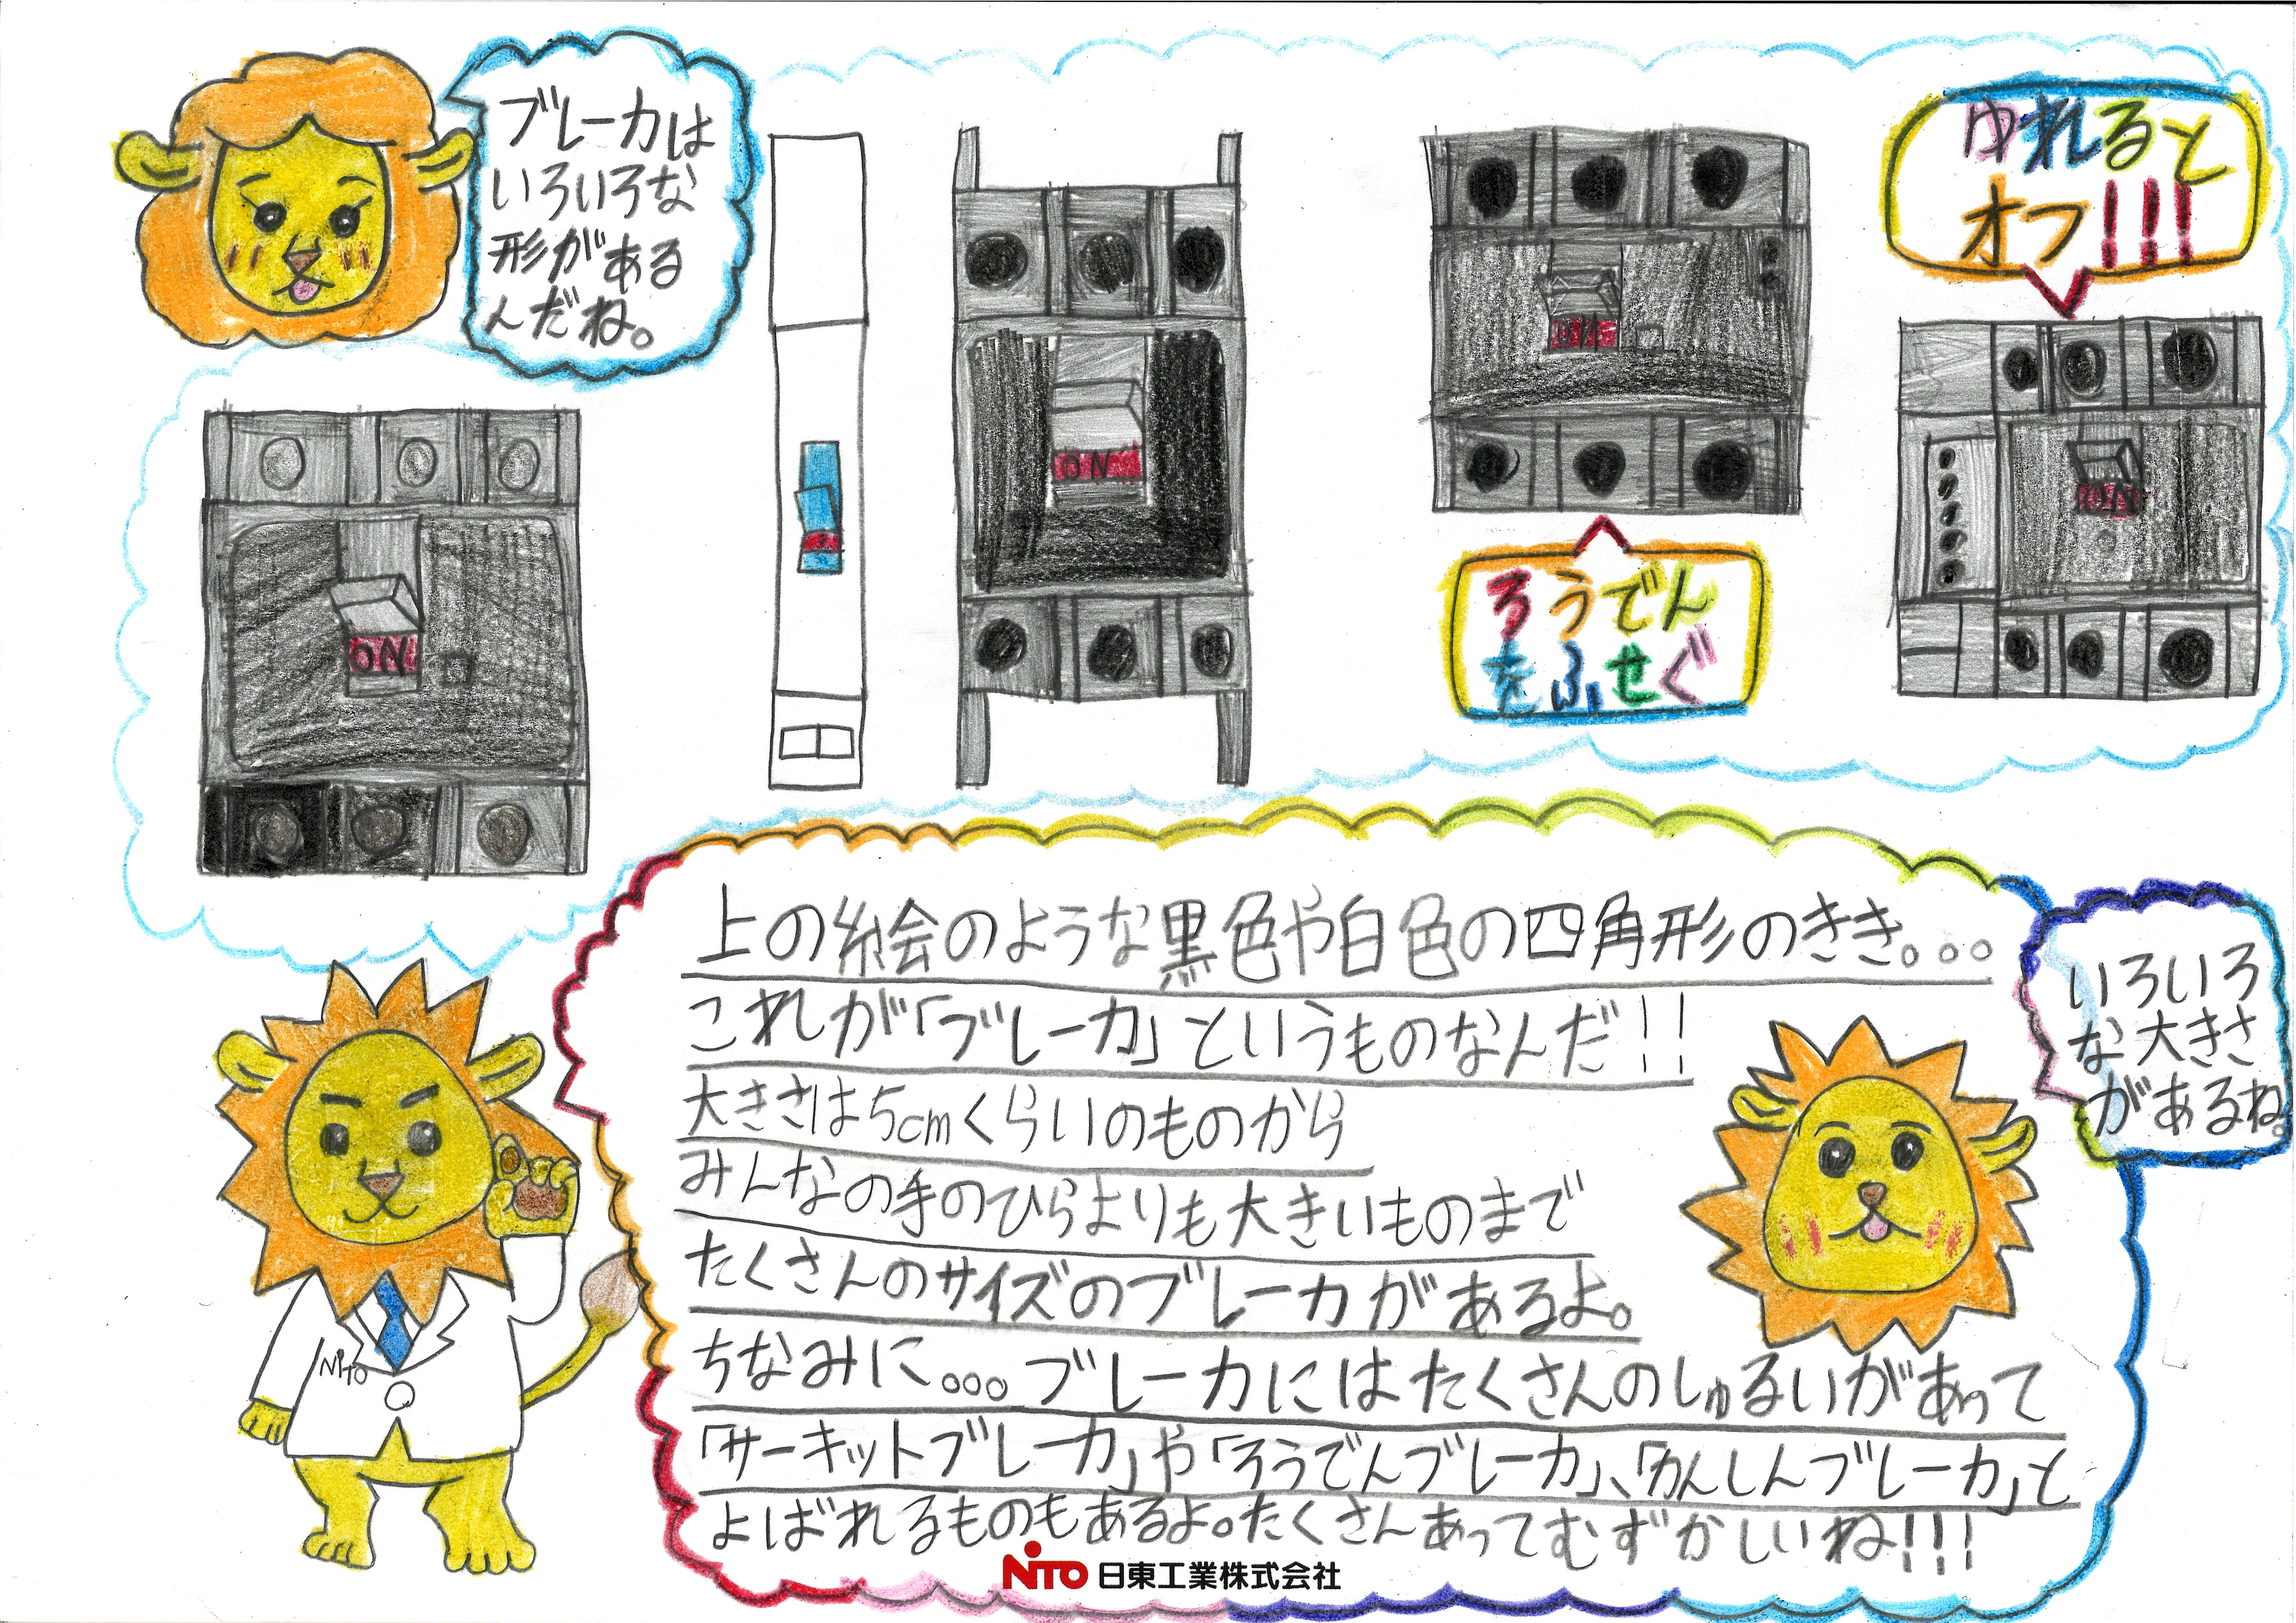 ブレーカは
いろいろな
形がある
んだね。
ゆれると
オフ!!!
ON
ON
ON
ON
ろうでん
をふせぐ
上の絵のような黒色や白色の四角形のきき。。。
これが「ブレーカ」というものなんだ!!
大きさは5cmくらいのものから
みんなの手のひらよりも大きいものまで
たくさんのサイズのブレーカがあるよ。
ちなみに。。。ブレーカにはたくさんのしゅるいがあって
「サーキットブレーカ」や「ろうでんブレーカ」、「かんしんブレーカ」と
よばれるものもあるよ。たくさんあってむずかしいね!!!
いろいろ
な大きさ
があるね。
NiTO
NITO 日東工業株式会社